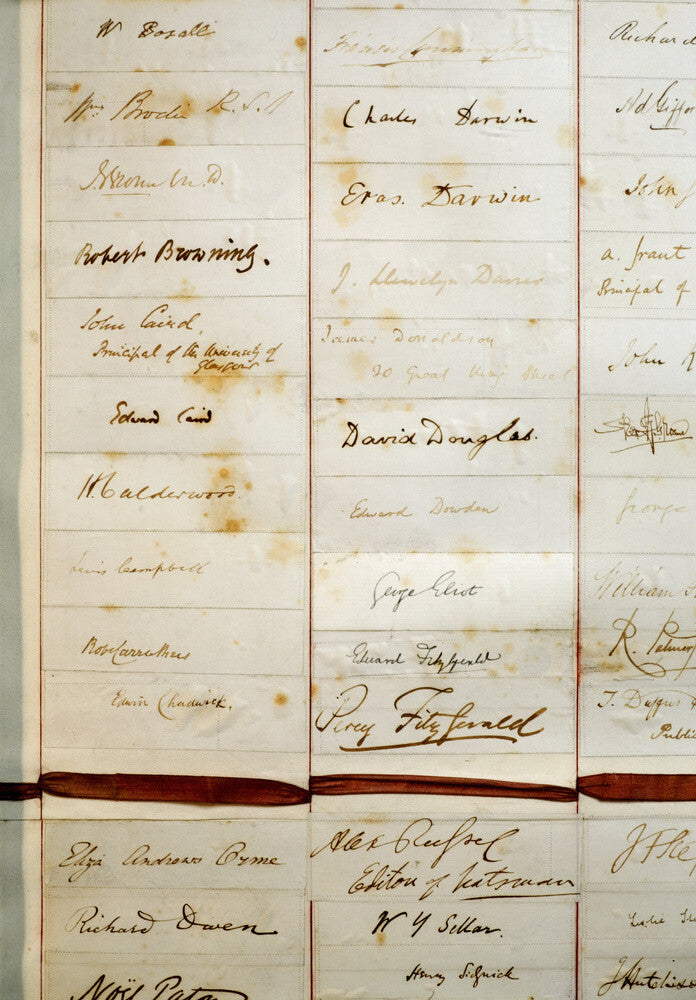 W Boxall
Wm Brodie R.S.A
J. Brown M.D.
Robert Browning.
John Caird,
Principal of the University of
Glasgow
Edward Caird
H Calderwood
Lewis Campbell
Robt Carruthers
Edwin Chadwick.
Francis Cunningham
Charles Darwin
Eras. Darwin
J. Llewelyn Davies
James Donaldson
20 Great King Street
David Douglas.
Edward Dowden
George Eliot
Edward Fitzgerald
Percy Fitzgerald
Richard
Ad Giffor
John
a. grant
Principal of
John
George
William
R. Palmer
J. Duffus
Publi
Eliza Andrews Orme
Richard Owen
Noël Paton
Alex Russel
Editor of Scotsman
W Y Sellar.
Henry Sidgwick
Leslie
J Hutchison